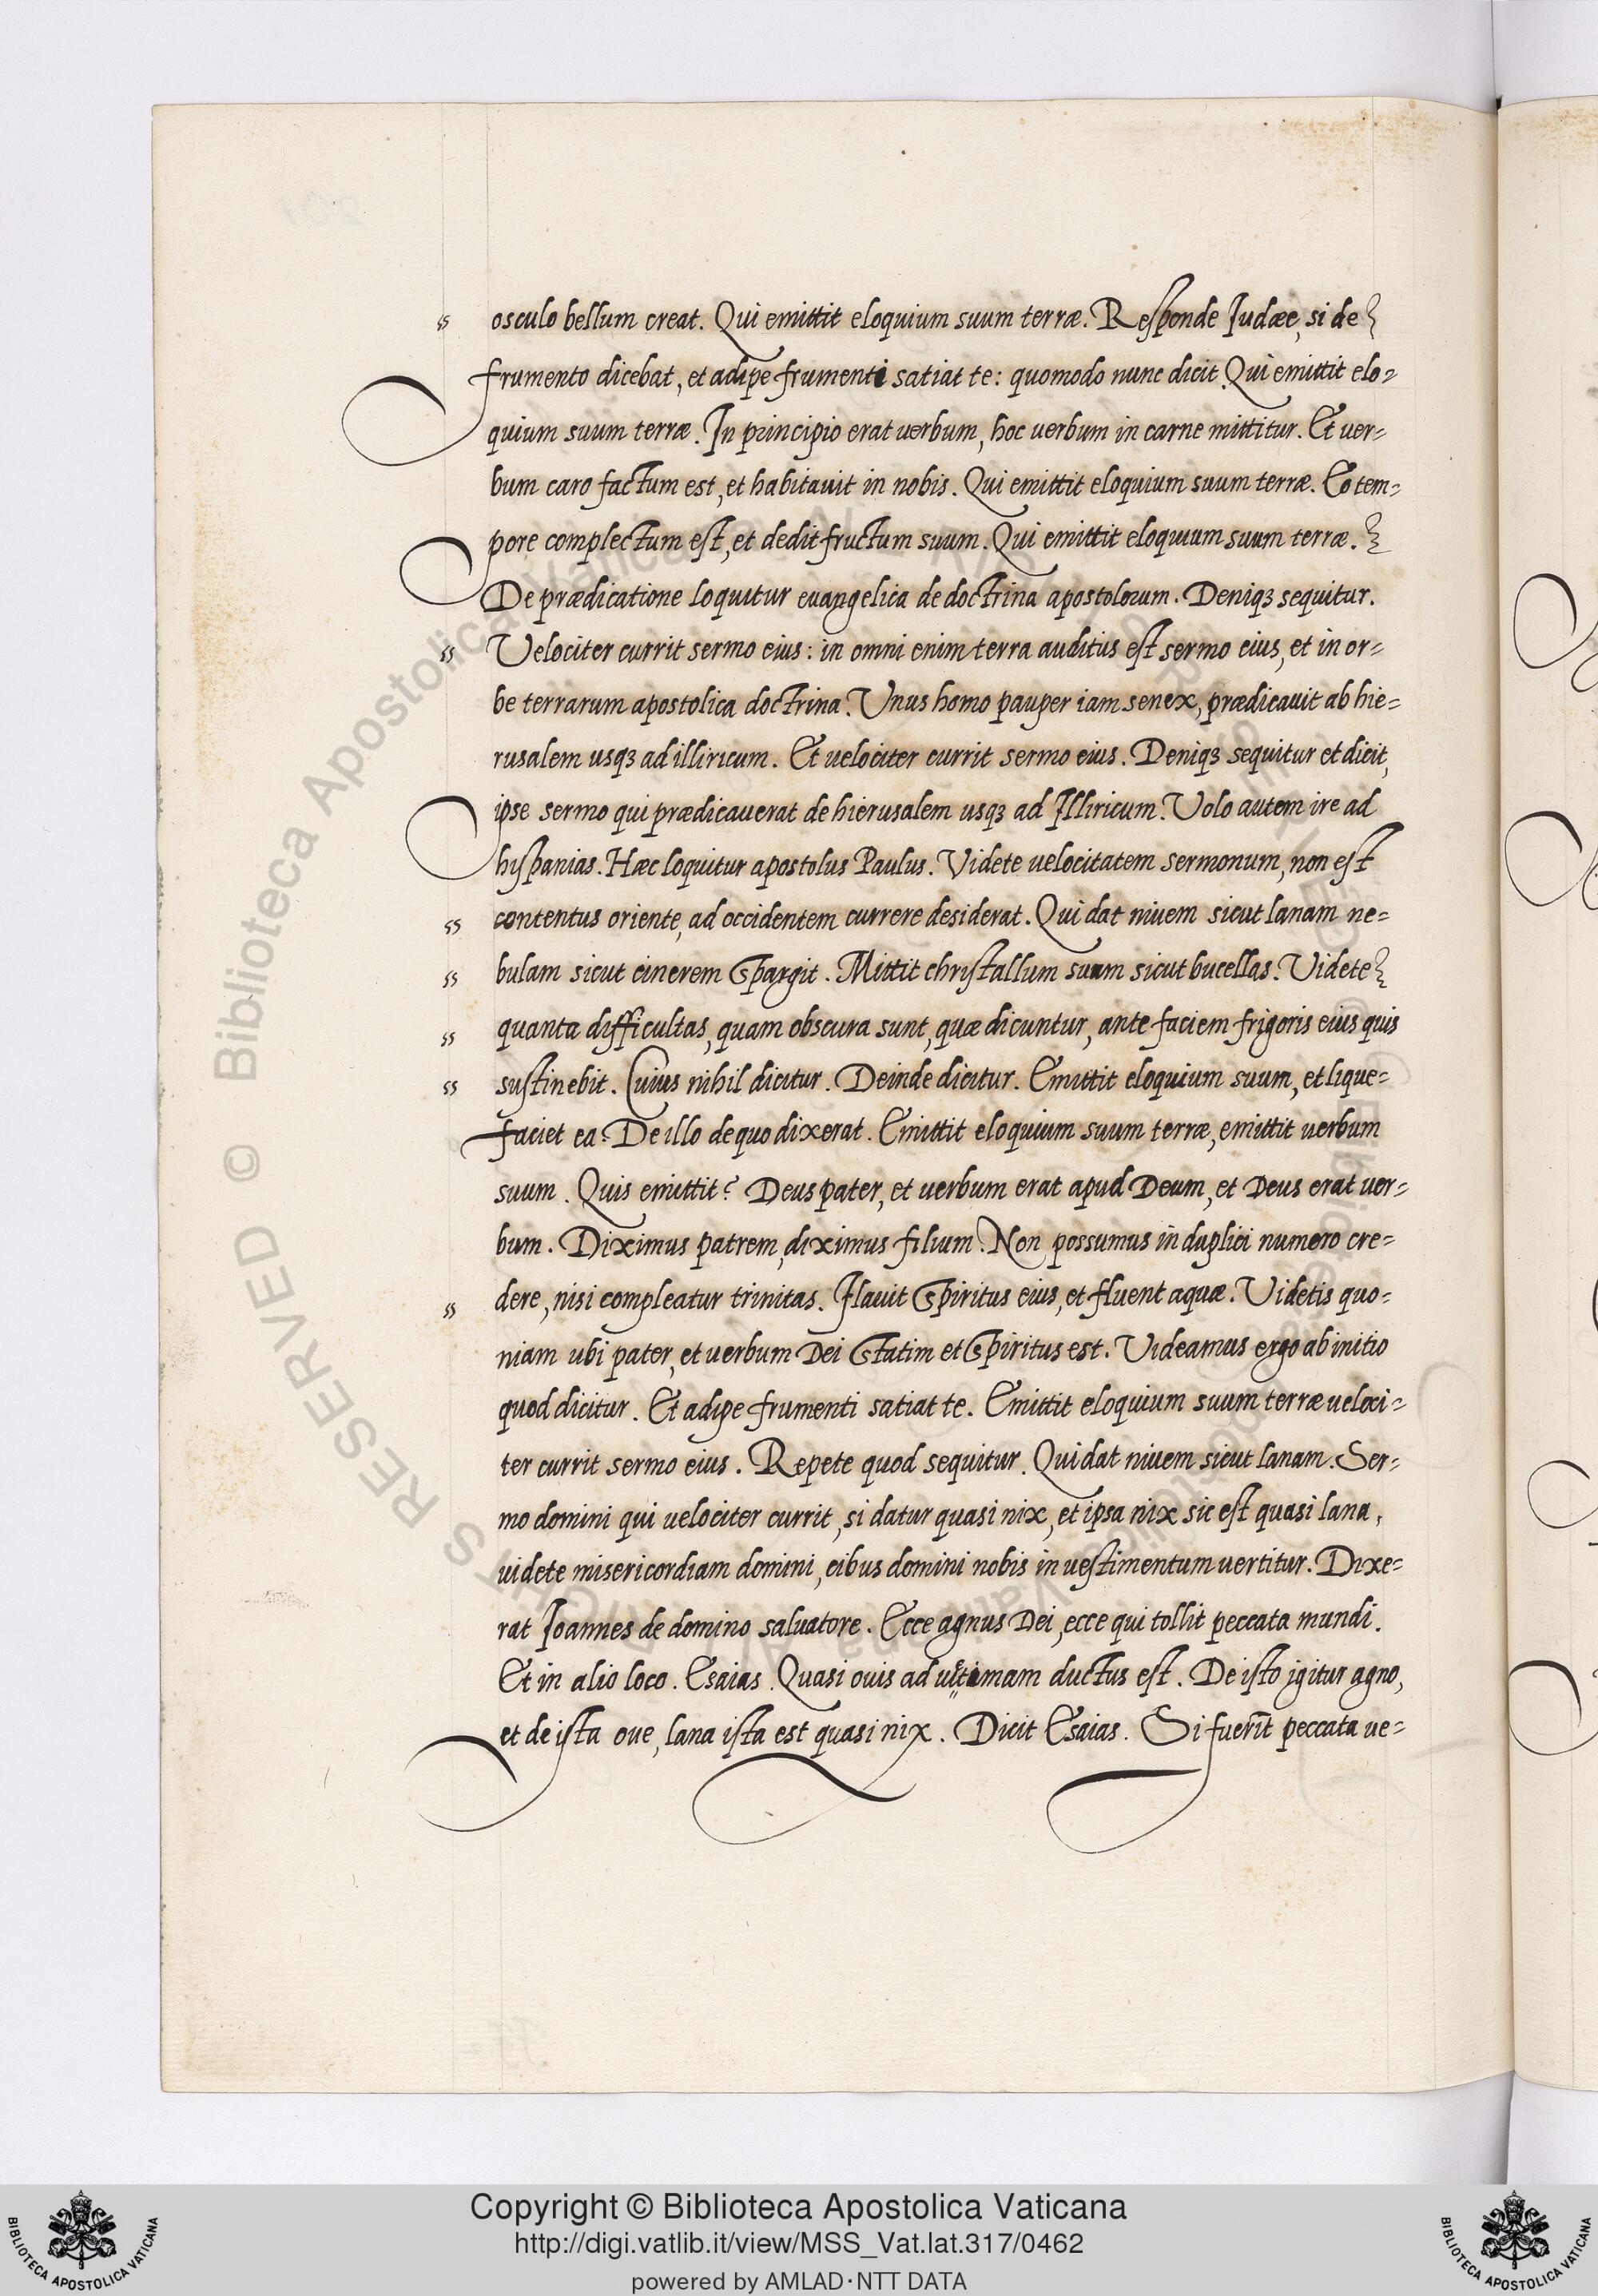 osculo bellum creat. Qui emittit eloquium suum terræ. Responde Iudæe, si de
frumento dicebat, et adipe frumenti satiat te: quomodo nunc dicit Qui emittit elo=
quium suum terræ. In principio erat uerbum, hoc uerbum in carne mittitur. Et uer=
bum caro factum est, et habitauit in nobis. Qui emittit eloquium suum terræ. Eo tem=
pore complectum est, et dedit fructum suum. Qui emittit eloquium suum terræ.
De prædicatione loquitur euangelica de doctrina apostolorum. Deniqꝫ sequitur.
Velociter currit sermo eius: in omni enim terra auditus est sermo eius, et in or=
be terrarum apostolica doctrina. Vnus homo pauper iam senex, prædicauit ab hie=
rusalem usqꝫ ad illiricum. Et uelociter currit sermo eius. Deniqꝫ sequitur et dicit,
ipse sermo qui prædicauerat de hierusalem usqꝫ ad Illiricum. Volo autem ire ad
hispanias. Hæc loquitur apostolus Paulus. Videte uelocitatem sermonum, non est
contentus oriente, ad occidentem currere desiderat. Qui dat niuem sicut lanam ne=
bulam sicut cinerem spargit. Mittit christallum suum sicut bucellas. Videte
quanta difficultas, quam obscura sunt, quæ dicuntur, ante faciem frigoris eius quis
sustinebit. Cuius nihil dicitur. Deinde dicitur. Emittit eloquium suum, et lique=
faciet ea. De illo de quo dixerat. Emittit eloquium suum terræ, emittit uerbum
suum. Quis emittit? Deus pater, et uerbum erat apud Deum, et Deus erat uer=
bum. Diximus patrem, diximus filium. Non possumus in duplici numero cre=
dere, nisi compleatur trinitas. Flauit Spiritus eius, et fluent aquæ. Videtis quo=
niam ubi pater, et uerbum Dei statim et Spiritus est. Videamus ergo ab initio
quod dicitur. Et adipe frumenti satiat te. Emittit eloquium suum terræ ueloci=
ter currit sermo eius. Repete quod sequitur. Qui dat niuem sicut lanam. Ser=
mo domini qui uelociter currit, si datur quasi nix, et ipsa nix sic est quasi lana,
uidete misericordiam domini, cibus domini nobis in uestimentum uertitur. Dixe=
rat Ioannes de domino saluatore. Ecce agnus Dei, ecce qui tollit peccata mundi.
Et in alio loco. Esaias. Quasi ouis ad uictimam ductus est. De isto igitur agno,
et de ista oue, lana ista est quasi nix. Dicit Esaias. Si fuerīt peccata ue=
© Biblioteca Apostolica Vaticana
Copyright © Biblioteca Apostolica Vaticana
http://digi.vatlib.it/view/MSS_Vat.lat.317/0462
powered by AMLAD·NTT DATA
BIBLIOTECA APOSTOLICA VATICANA
BIBLIOTECA APOSTOLICA VATICANA